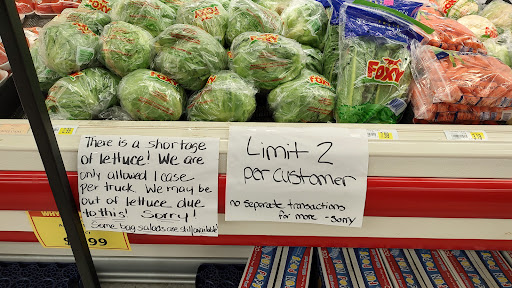 FOXY
FOXY
There is a shortage
of lettuce! We are
only allowed 1 case
per truck. We may be
out of lettuce due
to this! Sorry!
Some bag salads are still available
Limit 2
per customer
no separate transactions
for more - sorry
WHY
99